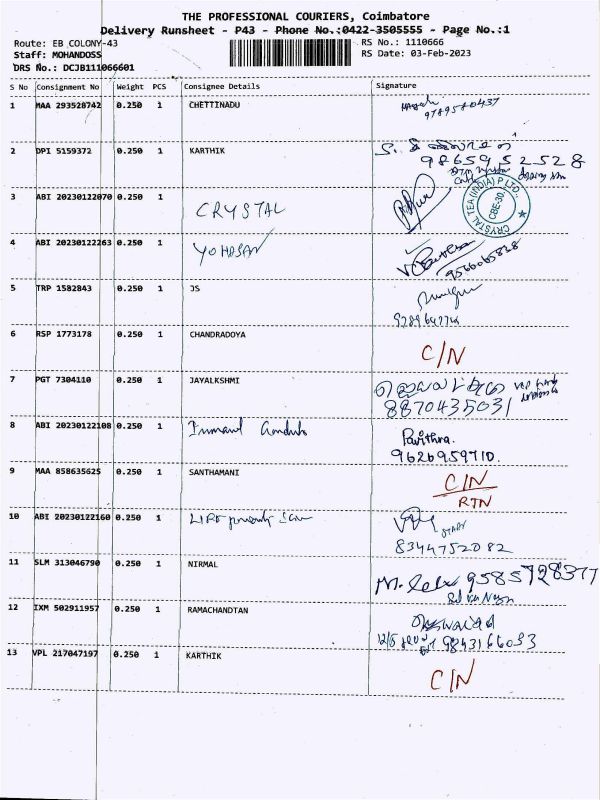 THE PROFESSIONAL COURIERS, Coimbatore
Delivery Runsheet - P43 - Phone No.:0422-3505555 - Page No.:1
Route: EB COLONY-43
RS No.: 1110666
Staff: MOHANDOSS
RS Date: 03-Feb-2023
DRS No.: DCJB111066601
S No Consignment No Weight PCS Consignee Details Signature
1 MAA 293528742 0.250 1 CHETTINADU
9789580437
2 DPI 5159372 0.250 1 KARTHIK
9865952528
3 ABI 20230122070 0.250 1 CRYSTAL
CRYSTAL TEA (INDIA) P LTD. CBE-30
4 ABI 20230122263 0.250 1 YOHASAN
9566065828
5 TRP 1582843 0.250 1 JS
6 RSP 1773178 0.250 1 CHANDRADOYA C/N
7 PGT 7304110 0.250 1 JAYALKSHMI
8870435031
8 ABI 20230122108 0.250 1 Pavithra.
9626959710.
9 MAA 858635625 0.250 1 SANTHAMANI C/N
RTN
10 ABI 20230122160 0.250 1
8344752082
11 SLM 313046790 0.250 1 NIRMAL 9585728377
12 IXM 502911957 0.250 1 RAMACHANDTAN
9843166033
13 VPL 217047197 0.250 1 KARTHIK C/N